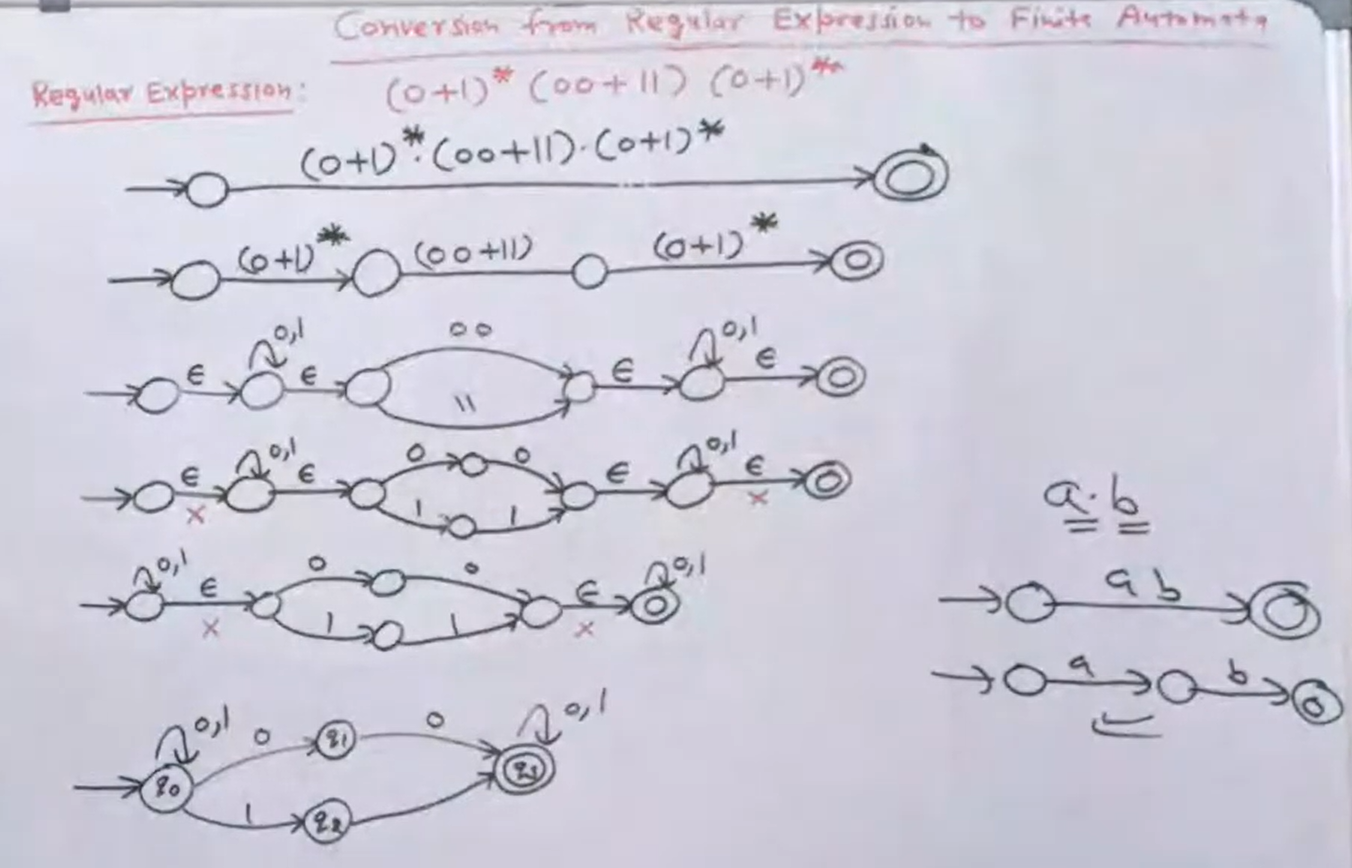 Conversion from Regular Expression to Finite Automata
Regular Expression: (0+1)* (00+11) (0+1)**
(0+1)*.(00+11).(0+1)*
(0+1)* (00+11) (0+1)*
ϵ 0,1 ϵ 00 11 ϵ 0,1 ϵ
ϵ x 0,1 ϵ 0 0 1 1 ϵ 0,1 ϵ x
a.b
0,1 ϵ x 0 0 1 1 ϵ x 0,1
ab
a b
q0 0,1 0 q1 0 1 q2 0,1